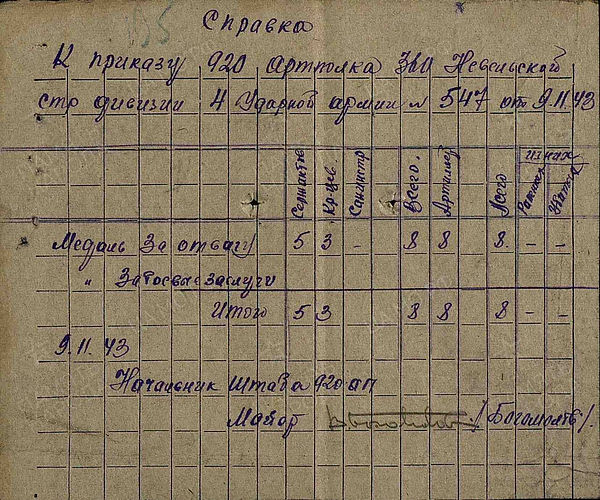 195
Справка
К приказу 920 артполка 360 Невельской
стр дивизии 4 Ударной армии № 547 от 9.11.43
Сержантов Кр-цев. Санинстр Всего. Артиллер Всего из них
Ранен
Медаль За отвагу 5 3 - 8 8 8. - -
" За боевые заслуги
Итого 5 3 8 8 8 - -
9.11.43
Начальник штаба 920 ап
Майор / Богомолов /.